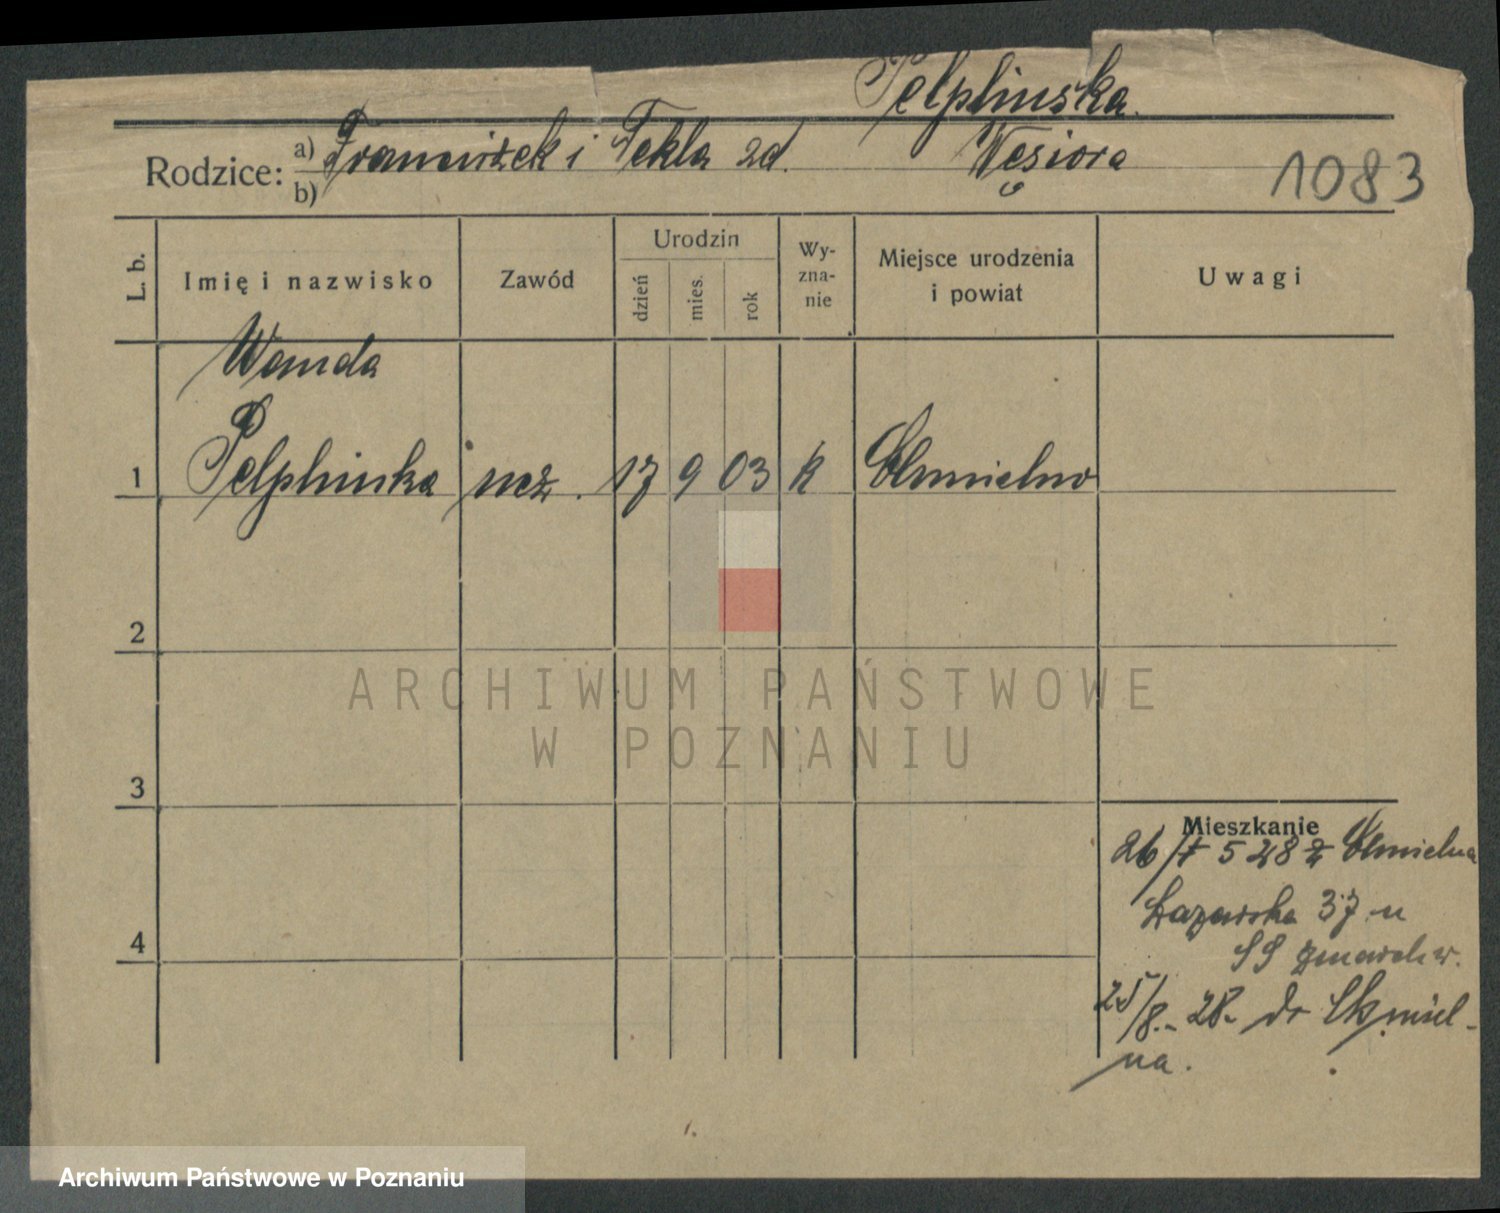 Pelplinska.
Rodzice: a) Franciszek i Tekla zd. Węsiora
b)
1083
L. b.
Imię i nazwisko
Zawód
Urodzin
dzień
mies.
rok
Wy-
zna-
nie
Miejsce urodzenia
i powiat
Uwagi
Wanda
1 Pelplinska niez. 17 9 03 k Chmielno
2
3
4
Mieszkanie
28 z Chmielna
Łazarska 37 u
SS
25/8.- 28. do Chmiel-
na.
ARCHIWUM PAŃSTWOWE
W POZNANIU
Archiwum Państwowe w Poznaniu